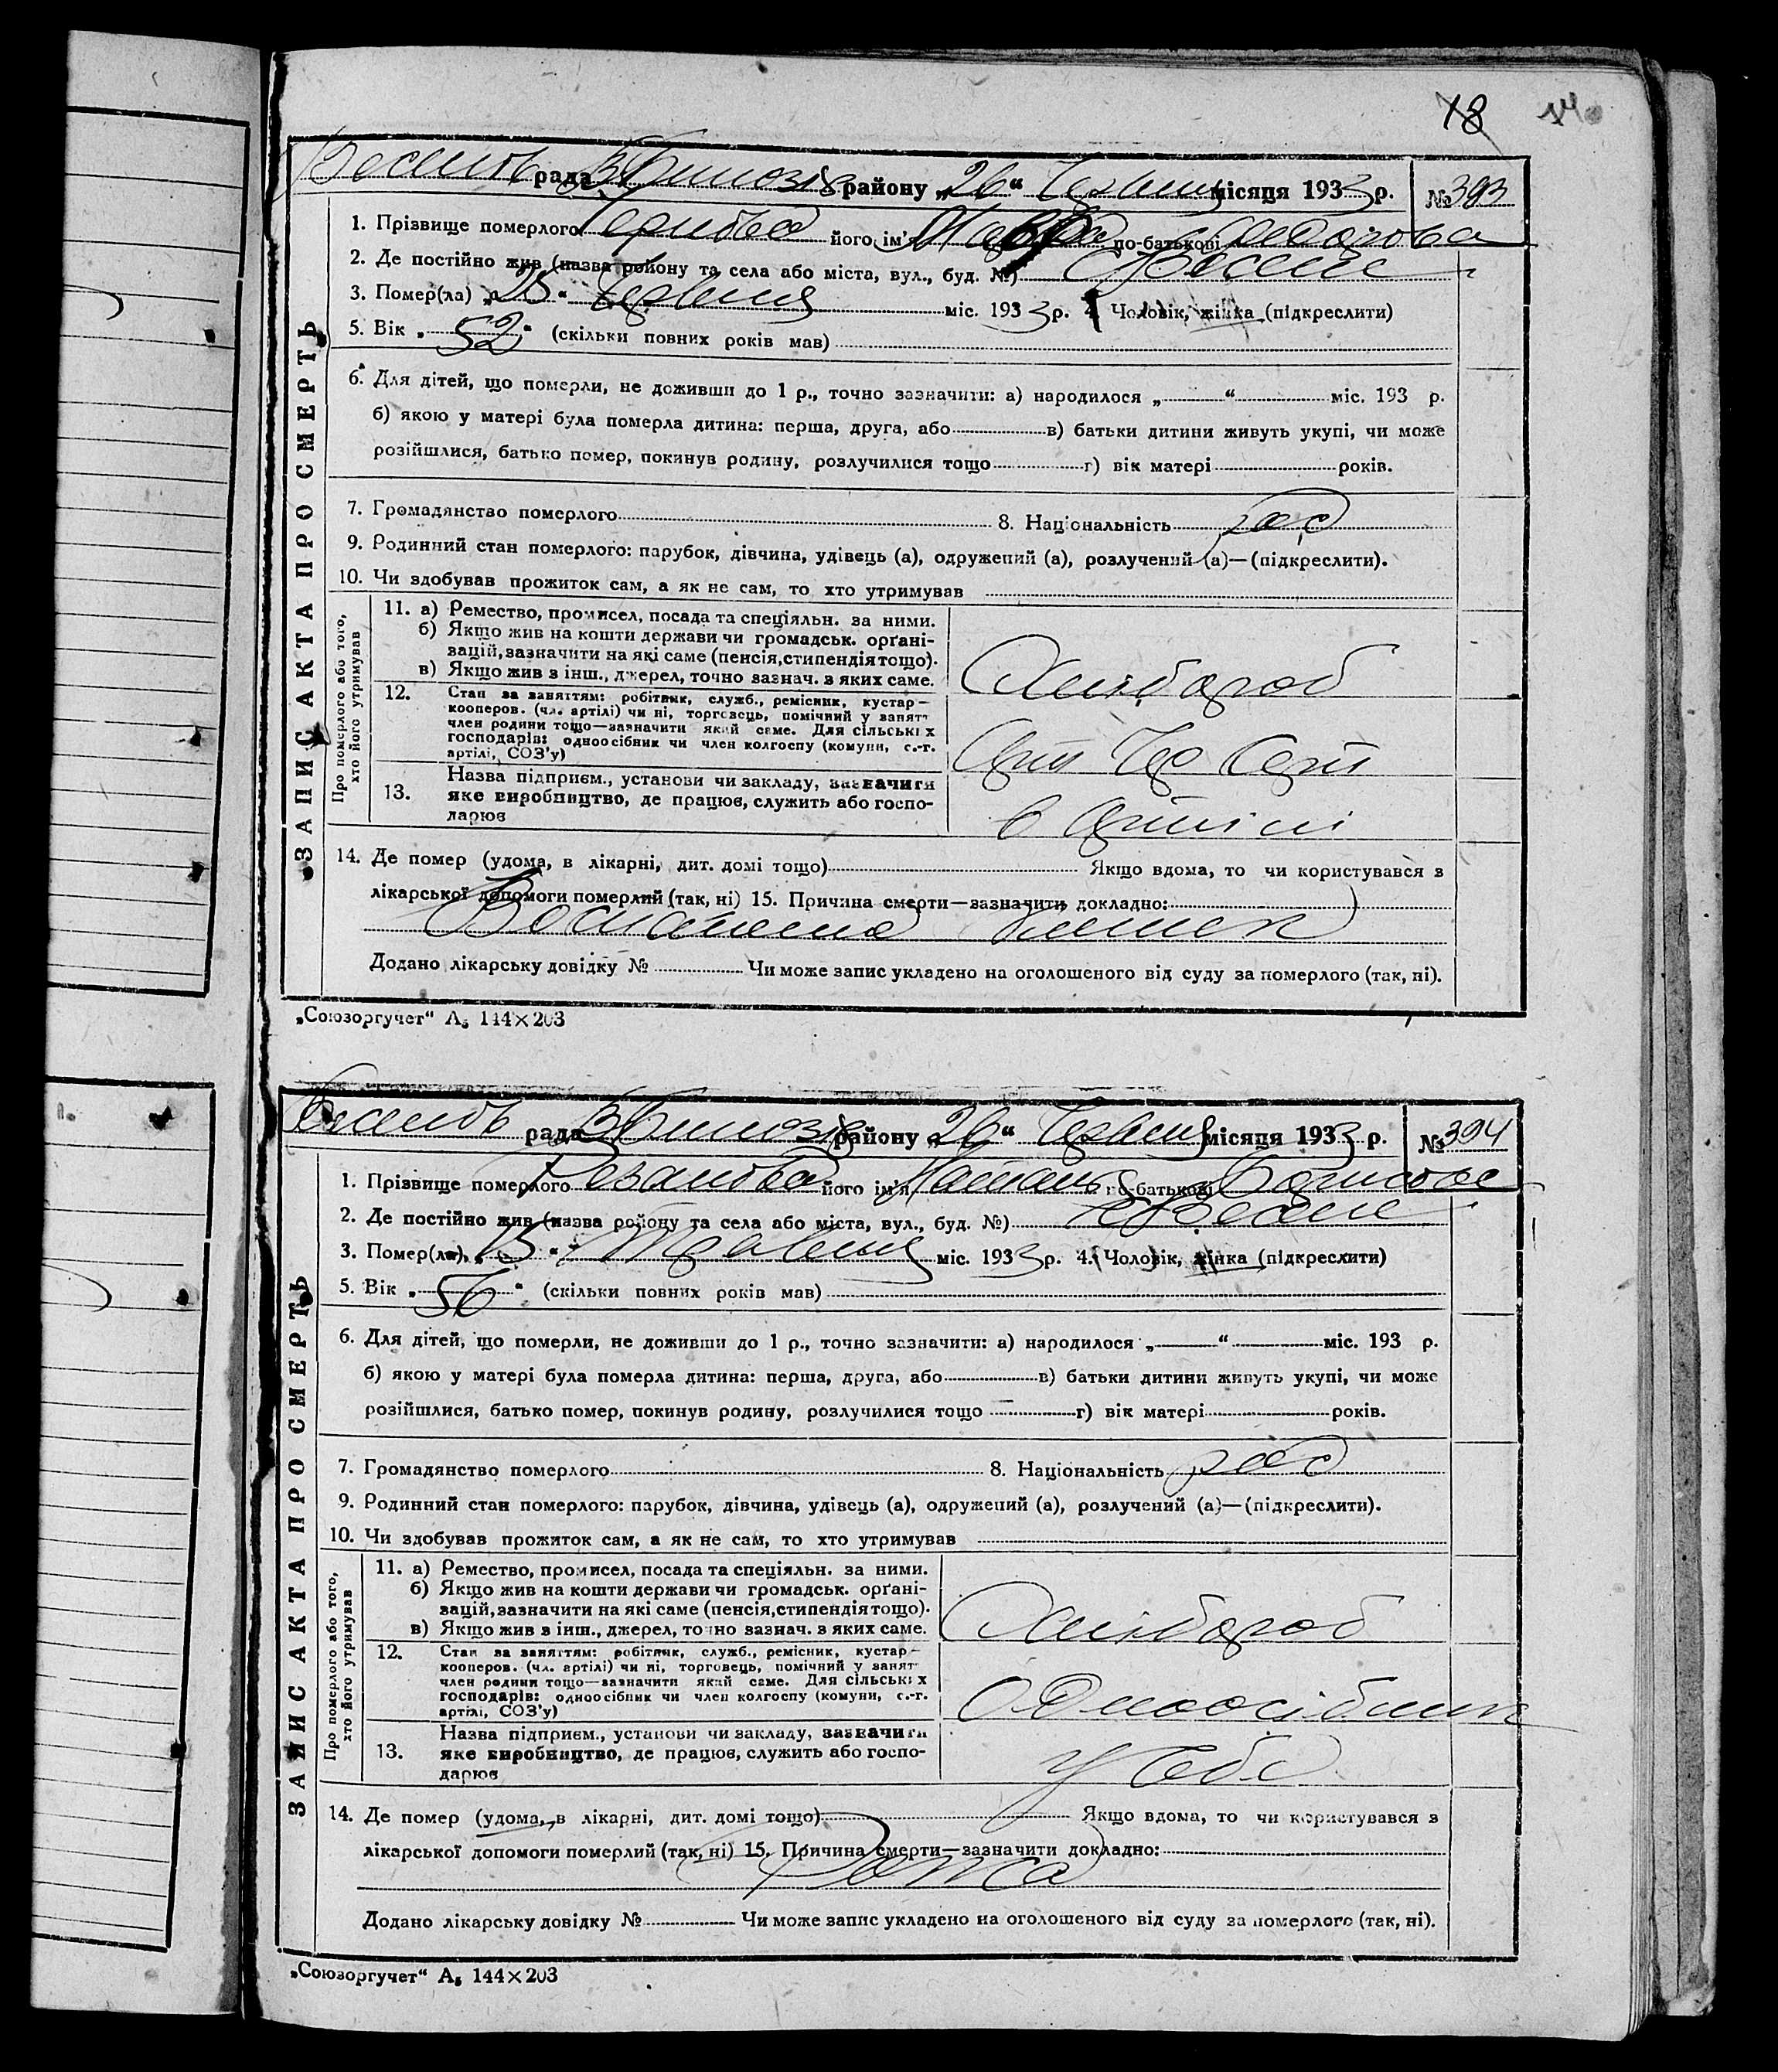 18
рада району „26“ Червня місяця 1933 р. № 393
1. Прізвище померлого його ім'я по-батькові
2. Де постійно жив (назва району та села або міста, вул., буд. №)
3. Помер(ла) „25“ Червня міс. 1933 р. 4. Чоловік, жінка (підкреслити)
5. Вік „52“ (скільки повних років мав)
6. Для дітей, що померли, не доживши до 1 р., точно зазначити: а) народилося „ “ міс. 193 р.
б) якою у матері була померла дитина: перша, друга, або в) батьки дитини живуть укупі, чи може
розійшлися, батько помер, покинув родину, розлучилися тощо г) вік матері років.
7. Громадянство померлого 8. Національність
9. Родинний стан померлого: парубок, дівчина, удівець (а), одружений (а), розлучений (а)—(підкреслити).
10. Чи здобував прожиток сам, а як не сам, то хто утримував
ЗАПИС АКТА ПРО СМЕРТЬ
Про померлого або того,
хто його утримував
11. а) Ремество, промисел, посада та спеціяльн. за ними.
б) Якщо жив на кошти держави чи громадськ. орґані-
зацій, зазначити на які саме (пенсія, стипендія тощо).
в) Якщо жив з інш., джерел, точно зазнач. з яких саме.
Хлібороб
12. Стан за заняттям: робітник, служб., ремісник, кустар—
кооперов. (чл. артілі) чи ні, торговець, помічний у занят
член родини тощо—зазначити який саме. Для сільських
господарів: одноосібник чи член колгоспу (комуни, с.-г.
артілі, СОЗ'у)
13. Назва підприєм., установи чи закладу, зазначити
яке виробництво, де працює, служить або госпо-
дарює
в Артілі
14. Де помер (удома, в лікарні, дит. домі тощо) Якщо вдома, то чи користувався з
лікарської допомоги померлий (так, ні) 15. Причина смерти—зазначить докладно:
Додано лікарську довідку № Чи може запис укладено на оголошеного від суду за померлого (так, ні).
„Союзоргучет“ А5 144×203
рада району „26“ Червня місяця 1933 р. № 394
1. Прізвище померлого його ім'я по-батькові
2. Де постійно жив (назва району та села або міста, вул., буд. №)
3. Помер(ла) „15“ Травня міс. 1933 р. 4. Чоловік, жінка (підкреслити)
5. Вік „56“ (скільки повних років мав)
6. Для дітей, що померли, не доживши до 1 р., точно зазначити: а) народилося „ “ міс. 193 р.
б) якою у матері була померла дитина: перша, друга, або в) батьки дитини живуть укупі, чи може
розійшлися, батько помер, покинув родину, розлучилися тощо г) вік матері років.
7. Громадянство померлого 8. Національність
9. Родинний стан померлого: парубок, дівчина, удівець (а), одружений (а), розлучений (а)—(підкреслити).
10. Чи здобував прожиток сам, а як не сам, то хто утримував
ЗАПИС АКТА ПРО СМЕРТЬ
Про померлого або того,
хто його утримував
11. а) Ремество, промисел, посада та спеціяльн. за ними.
б) Якщо жив на кошти держави чи громадськ. орґані-
зацій, зазначити на які саме (пенсія, стипендія тощо).
в) Якщо жив з інш., джерел, точно зазнач. з яких саме.
Хлібороб
12. Стан за заняттям: робітник, служб., ремісник, кустар—
кооперов. (чл. артілі) чи ні, торговець, помічний у занят
член родини тощо—зазначити який саме. Для сільських
господарів: одноосібник чи член колгоспу (комуни, с.-г.
артілі, СОЗ'у)
Одноосібник
13. Назва підприєм., установи чи закладу, зазначити
яке виробництво, де працює, служить або госпо-
дарює
У себе
14. Де помер (удома, в лікарні, дит. домі тощо) Якщо вдома, то чи користувався з
лікарської допомоги померлий (так, ні) 15. Причина смерти—зазначити докладно:
Рожа
Додано лікарську довідку № Чи може запис укладено на оголошеного від суду за померлого (так, ні).
„Союзоргучет“ А5 144×203